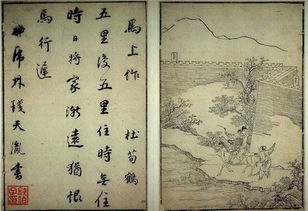 馬上作 杜荀鶴
五里復五里住時無住
時日將家漸遠猶恨
馬行遲
錢天胤書